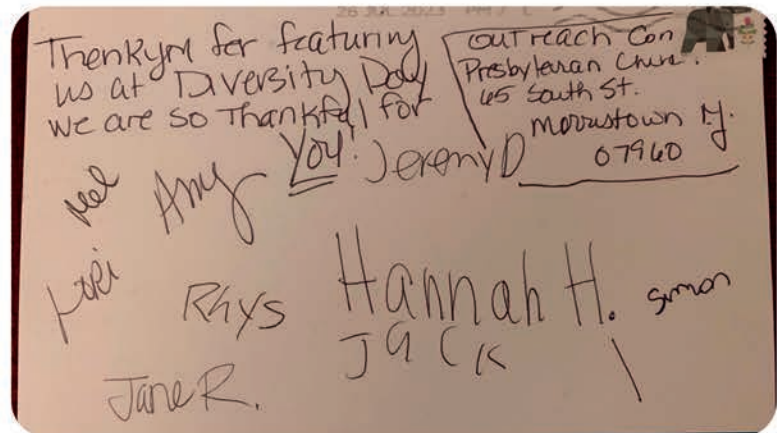 26 JUL 2023 PM 7 L
Thenkym for featuring
us at Diversity Day
we are so Thankful for
You.
OUTREACH Con
Presbyterian Church.
65 South St.
Morristown NJ.
07960
Jeremy D
Mel
Amy
Lori
Rhys
Hannah H.
Simon
JACK
Jane R.